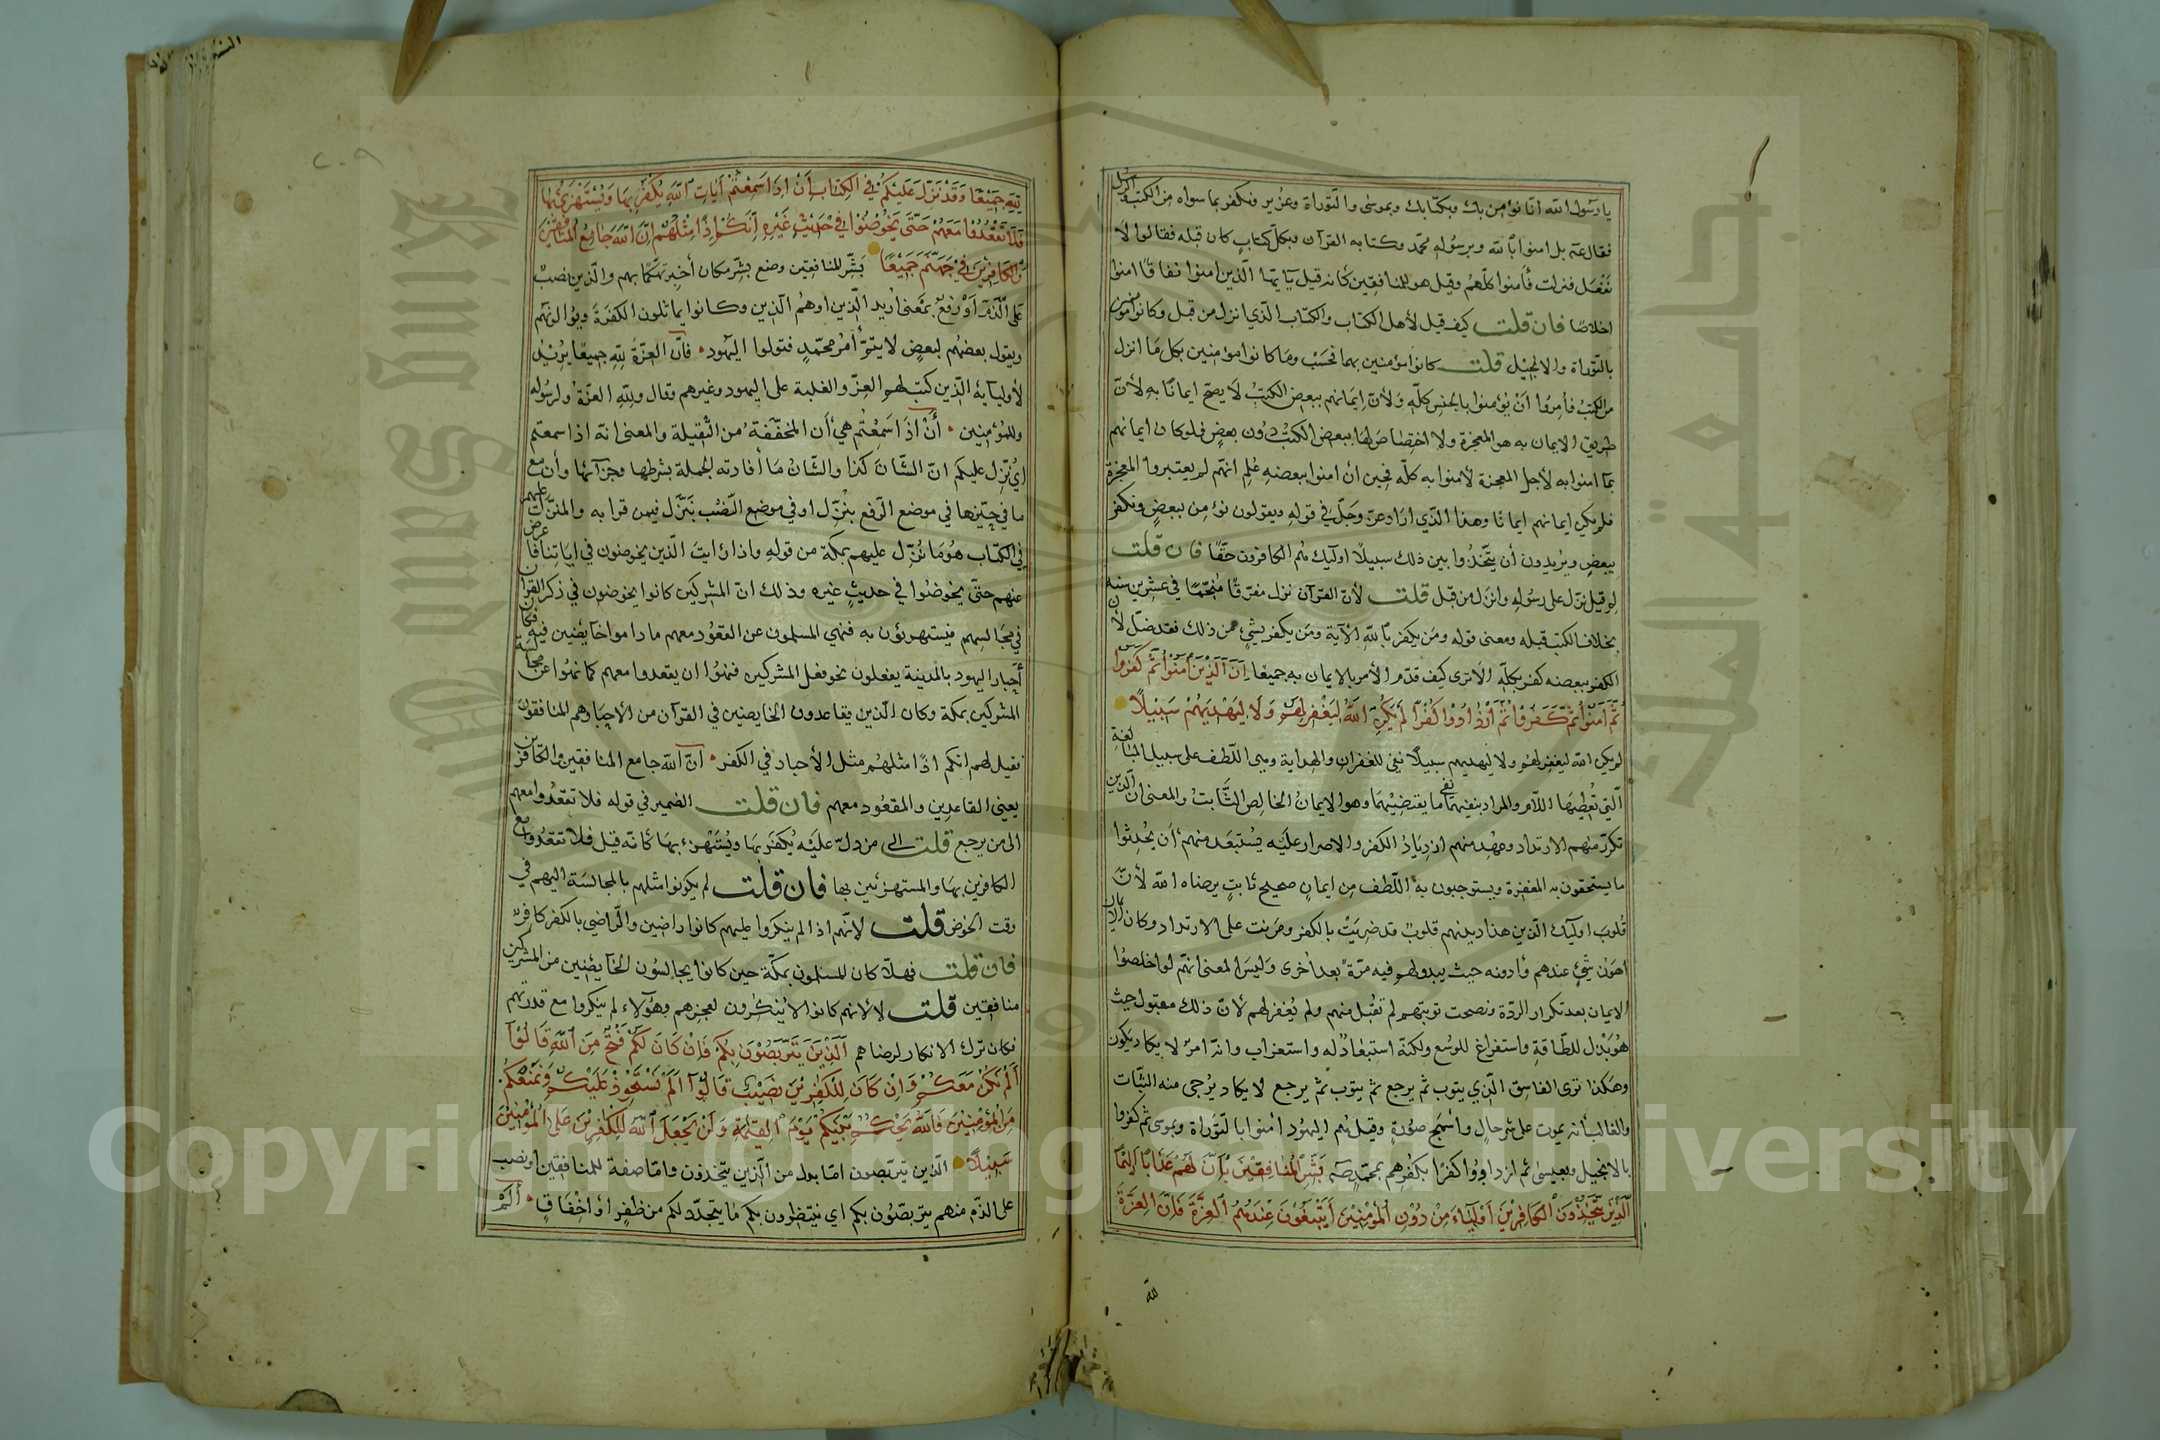 يا رسول الله انا نؤمن بك وبكتابك وبموسى والتوراة وعزير ونكفر بما سواه من الكتب والرسل
فقال عم بل امنوا بالله وبرسوله محمد وكتابه القرآن وبكل كتاب كان قبله فقالوا لا
نفعل فنزلت فأمنوا كلهم وقيل هو للمنافقين كأنه قيل يا يها الذين امنوا نفاقا امنوا
اخلاصا فان قلت كيف قيل لأهل الكتاب والكتاب الذي انزل من قبل وكانوا مؤمنين
بالتوراة والانجيل قلت كانوا مؤمنين بهما فحسب وما كانوا مؤمنين بكل ما انزل
من الكتب فأمروا أن يؤمنوا بالجنس كله ولأن ايمانهم ببعض الكتب لا يصح ايمانا به لأن
طريق الايمان به هو المعجزة ولا اختصاص لها ببعض الكتب دون بعض فلو كان ايمانهم
بما امنوا به لأجل المعجزة لأمنوا به كله فحين امنوا ببعضه علم انهم لم يعتبروا المعجزة
فلم يكن ايمانهم ايمانا وهذا الذي اراد عز وجل في قوله ويقولون نؤمن ببعض ونكفر
ببعض ويريدون أن يتخذوا بين ذلك سبيلا اولئك هم الكافرون حقا فان قلت
لم قيل نزل على رسوله وانزل من قبل قلت لأن القرآن نزل مفرقا منجما في عشرين سنة
بخلاف الكتب قبله ومعنى قوله ومن يكفر بالله الآية ومن يكفر بشئ من ذلك فقد ضل لأن
الكفر ببعضه كفر بكله الا ترى كيف قدم الأمر بالايمان به جميعا ان الذين امنوا ثم كفروا
ثم آمنوا ثم كفروا ثم ازدادوا كفرا لم يكن الله ليغفر لهم ولا ليهديهم سبيلا
لم يكن الله ليغفر لهم ولا ليهديهم سبيلا نفي للغفران والهداية وهي اللطف على سبيل المبالغة
التي تعطيها اللام والمراد بنفيهما نفي ما يقتضيهما وهو الايمان الخالص الثابت والمعنى ان الذين
تكرر منهم الارتداد وعهد منهم ازدياد الكفر والاصرار عليه يستبعد منهم أن يحدثوا
ما يستحقون به المغفرة ويستوجبون به اللطف من ايمان صحيح ثابت يرضاه الله لأن
قلوب اولئك الذين هذا ديدنهم قلوب قد ضريت بالكفر ومرنت على الارتداد وكان الايمان
اهون شئ عندهم وأدونه حيث يبدو لهم فيه مرة بعد أخرى وليس المعنى انهم لو اخلصوا
الايمان بعد تكرار الردة ونصحت توبتهم لم تقبل منهم ولم يغفر لهم لأن ذلك مقبول حيث
هو بذل للطاقة واستفراغ للوسع ولكنه استبعاد له واستغراب وانه امر لا يكاد يكون
وهكذا ترى الفاسق الذي يتوب ثم يرجع ثم يتوب ثم يرجع لا يكاد يرجى منه الثبات
والغالب أنه يموت على شر حال واسمج صورة وقيل هم اليهود امنوا بالتوراة وبموسى ثم كفروا
بالانجيل وبعيسى ثم ازدادوا كفرا بكفرهم بمحمد صم بشر المنافقين بأن لهم عذابا اليما
الذين يتخذون الكافرين أولياء من دون المؤمنين أيبتغون عندهم العزة فان العزة
لله
لله جميعا وقد نزل عليكم في الكتاب أن اذا سمعتم آيات الله يكفر بها ويستهزئ بها
فلا تقعدوا معهم حتى يخوضوا في حديث غيره انكم اذا مثلهم ان الله جامع المنافقين
والكافرين في جهنم جميعا بشر المنافقين وضع بشر مكان أخبر تهكما بهم والذين نصب
على الذم أو رفع بمعنى اريد الذين او هم الذين وكانوا يمائلون الكفرة ويوالونهم
ويقول بعضهم لبعض لا يتم أمر محمد فتولوا اليهود فان العزة لله جميعا يريد
لأوليائه الذين كتب لهم العز والغلبة على اليهود وغيرهم وقال ولله العزة ولرسوله
وللمؤمنين أن اذا سمعتم هي أن المخففة من الثقيلة والمعنى انه اذا سمعتم
اي نزل عليكم ان الشأن كذا والشأن ما أفادته الجملة بشرطها وجزائها وأن مع
ما في حيزها في موضع الرفع بنزل او في موضع النصب بنزل فيمن قرا به والمنزل عليهم
في الكتاب هو ما نزل عليهم بمكة من قوله واذا رايت الذين يخوضون في اياتنا فاعرض
عنهم حتى يخوضوا في حديث غيره وذلك ان المشركين كانوا يخوضون في ذكر القرآن
في مجالسهم فيستهزؤن به فنهي المسلمون عن القعود معهم ما داموا خائضين فيه فكان
أحبار اليهود بالمدينة يفعلون نحو فعل المشركين فنهوا ان يقعدوا معهم كما نهوا عن مجالسة
المشركين بمكة وكان الذين يقاعدون الخايضين في القرآن من الأحبار هم المنافقون
فقيل لهم انكم اذا مثلهم مثل الأحبار في الكفر ان الله جامع المنافقين والكافرين
يعني القاعدين والمقعود معهم فان قلت الضمير في قوله فلا تقعدوا معهم
الى من يرجع قلت الى من دل عليه يكفر بها ويستهزء بها كأنه قيل فلا تقعدوا مع
الكافرين بها والمستهزئين بها فان قلت لم يكونوا مثلهم بالمجالسة اليهم في
وقت الخوض قلت لأنهم اذا لم ينكروا عليهم كانوا راضين والراضي بالكفر كافر
فان قلت فهلا كان المسلمون بمكة حين كانوا يجالسون الخائضين من المشركين
منافقين قلت لأنهم كانوا لا ينكرون لعجزهم وهؤلاء لم ينكروا مع قدرتهم
فكان ترك الانكار لرضاهم الذين يتربصون بكم فان كان لكم فتح من الله قالوا
ألم نكن معكم وان كان للكافرين نصيب قالوا ألم نستحوذ عليكم ونمنعكم
من المؤمنين فالله يحكم بينكم يوم القيمة ولن يجعل الله للكافرين على المؤمنين
سبيلا الذين يتربصون اما بدل من الذين يتخذون واما صفة للمنافقين او نصب
على الذم منهم يتربصون بكم اي ينتظرون بكم ما يتجدد لكم من ظفر او اخفاق ألم
٢٠٩
Copyright © King Saud University
King Saud University
جامعة الملك سعود